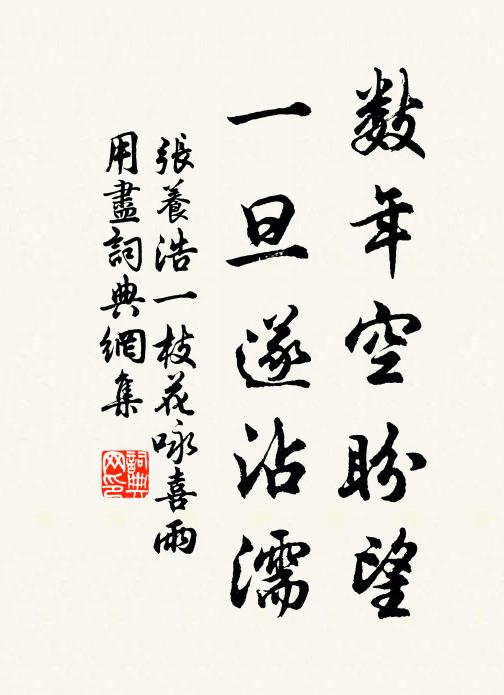 数年空盼望
一旦遂沾濡
張養浩一枝花咏喜雨
用盡詞典網集
詞典
网印